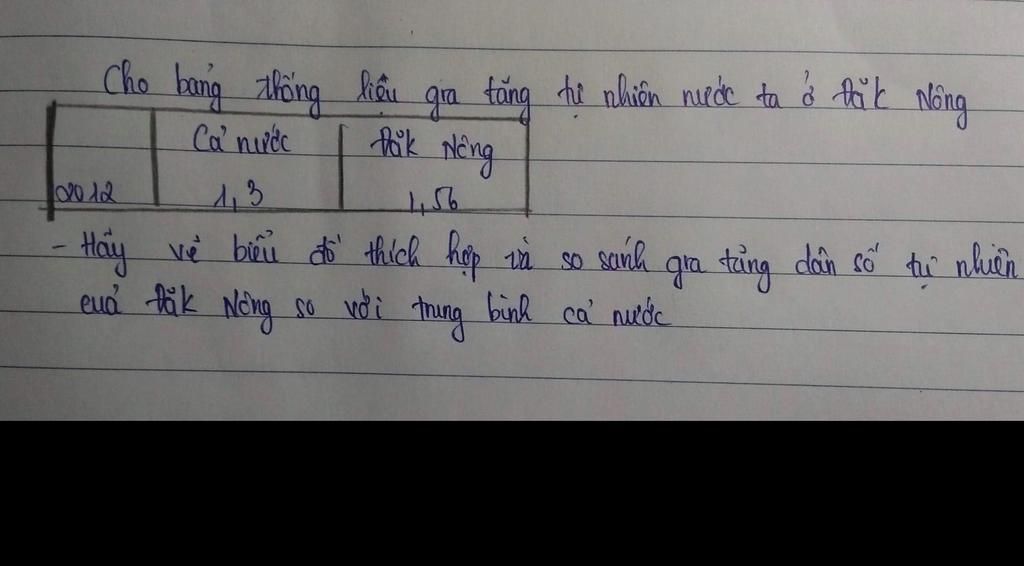 Cho bảng thống liệu gia tăng tự nhiên nước ta ở Đăk Nông
Cả nước Đăk Nông
2012 1,3 1,56
- Hãy vẽ biểu đồ thích hợp và so sánh gia tăng dân số tự nhiên
của Đăk Nông so với trung bình cả nước